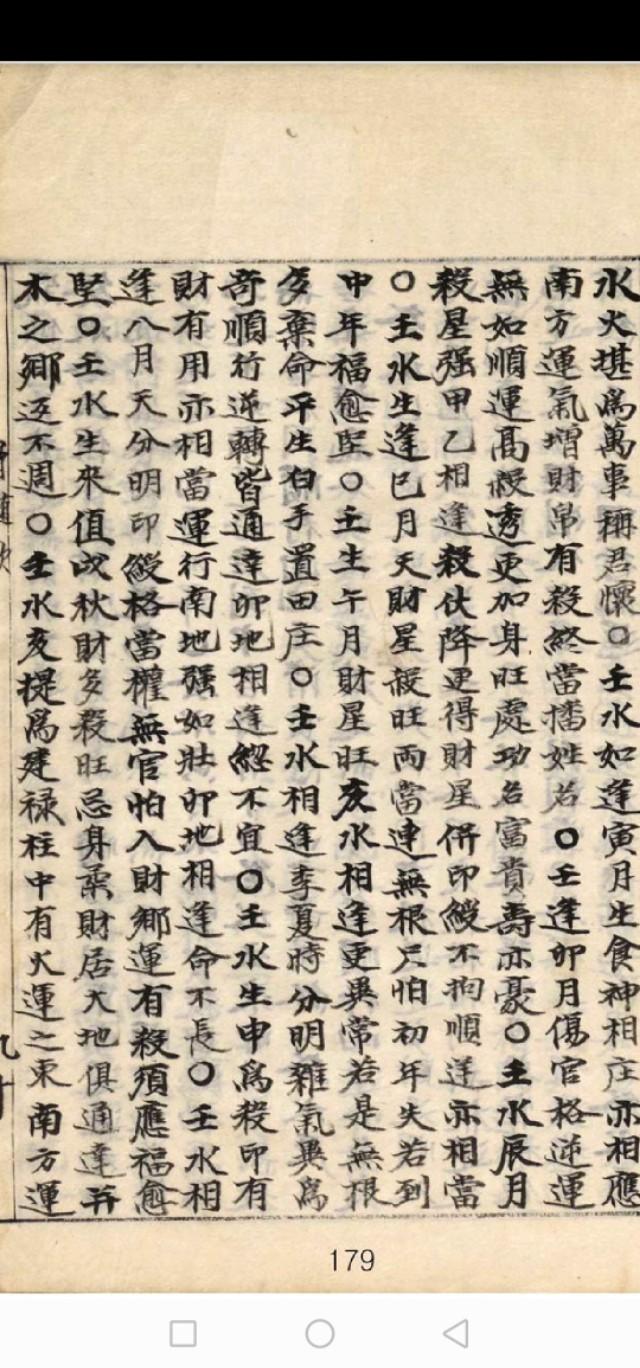 水火堪爲萬事稱君懷○壬水如逢寅月生食神相庄亦相應
南方運氣增財帛有殺終當播姓名○壬逢卯月傷官格逆運
無如順運高殺透更加身旺處功名富貴壽亦豪○壬水辰月
殺星强甲乙相逢殺伏降更得財星併印綬不拘順逆亦相當
○壬水生逢巳月天財星殺旺両當連無根只怕初年失若到
申年福愈堅○壬生午月財星旺亥水相逢更異常若是無根
多棄命平生白手置田庄○壬水相逢季夏時分明雜氣異爲
奇順行逆轉皆通達卯地相逢緫不宜○壬水生申爲殺印有
財有用亦相當運行南地强如壯卯地相逢命不長○壬水相
逢八月天分明印綬格當權無官怕入財鄉運有殺須應福愈
堅○壬水生來值戌秋財多殺旺忌身柔財居大地俱通達并
木之鄉返不週○壬水亥提爲建禄柱中有火運之東南方運
179